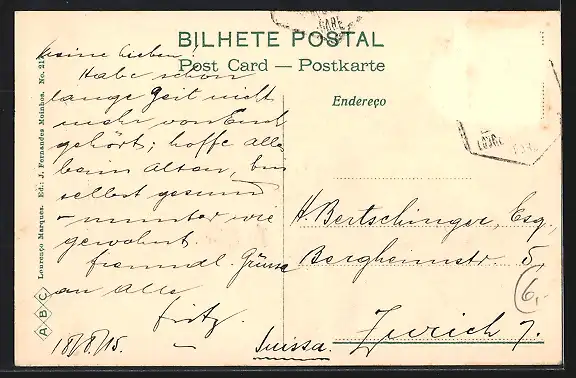 BILHETE POSTAL
Post Card — Postkarte
Endereço
Meine Lieben!
Habe schon
lange Zeit nicht
mehr von Euch
gehört; hoffe alles
beim Alten, bin
selbst gesund
- munter wie
gewohnt.
freundl. Grüsse
an Alle
Fritz.
18/8/15.
H. Bertschinger, Esq,
Bergheimstr. 5,
Zurich 7.
Suissa.
6,-
Lourenço Marques. Ed.: J. Fernandes Moinhos. No.
A B C
GARE